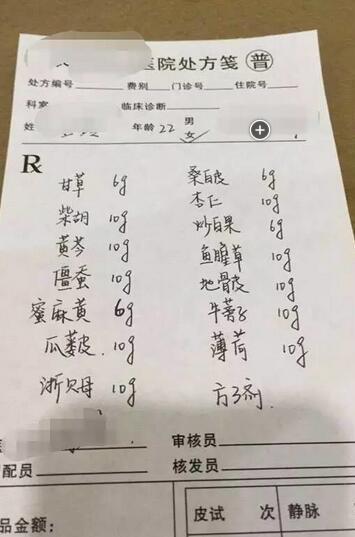 医院处方笺 普
处方编号 费别 门诊号 住院号
科室 临床诊断
姓 年龄 22 男
女
R
甘草 6g 桑白皮 6g
柴胡 10g 杏仁 10g
黄芩 10g 炒白果 6g
僵蚕 10g 鱼腥草 10g
蜜麻黄 6g 地骨皮 10g
瓜蒌皮 10g 牛蒡子 10g
浙贝母 10g 薄荷 10g
审核员
配员 核发员
品金额: 皮试 次 静脉